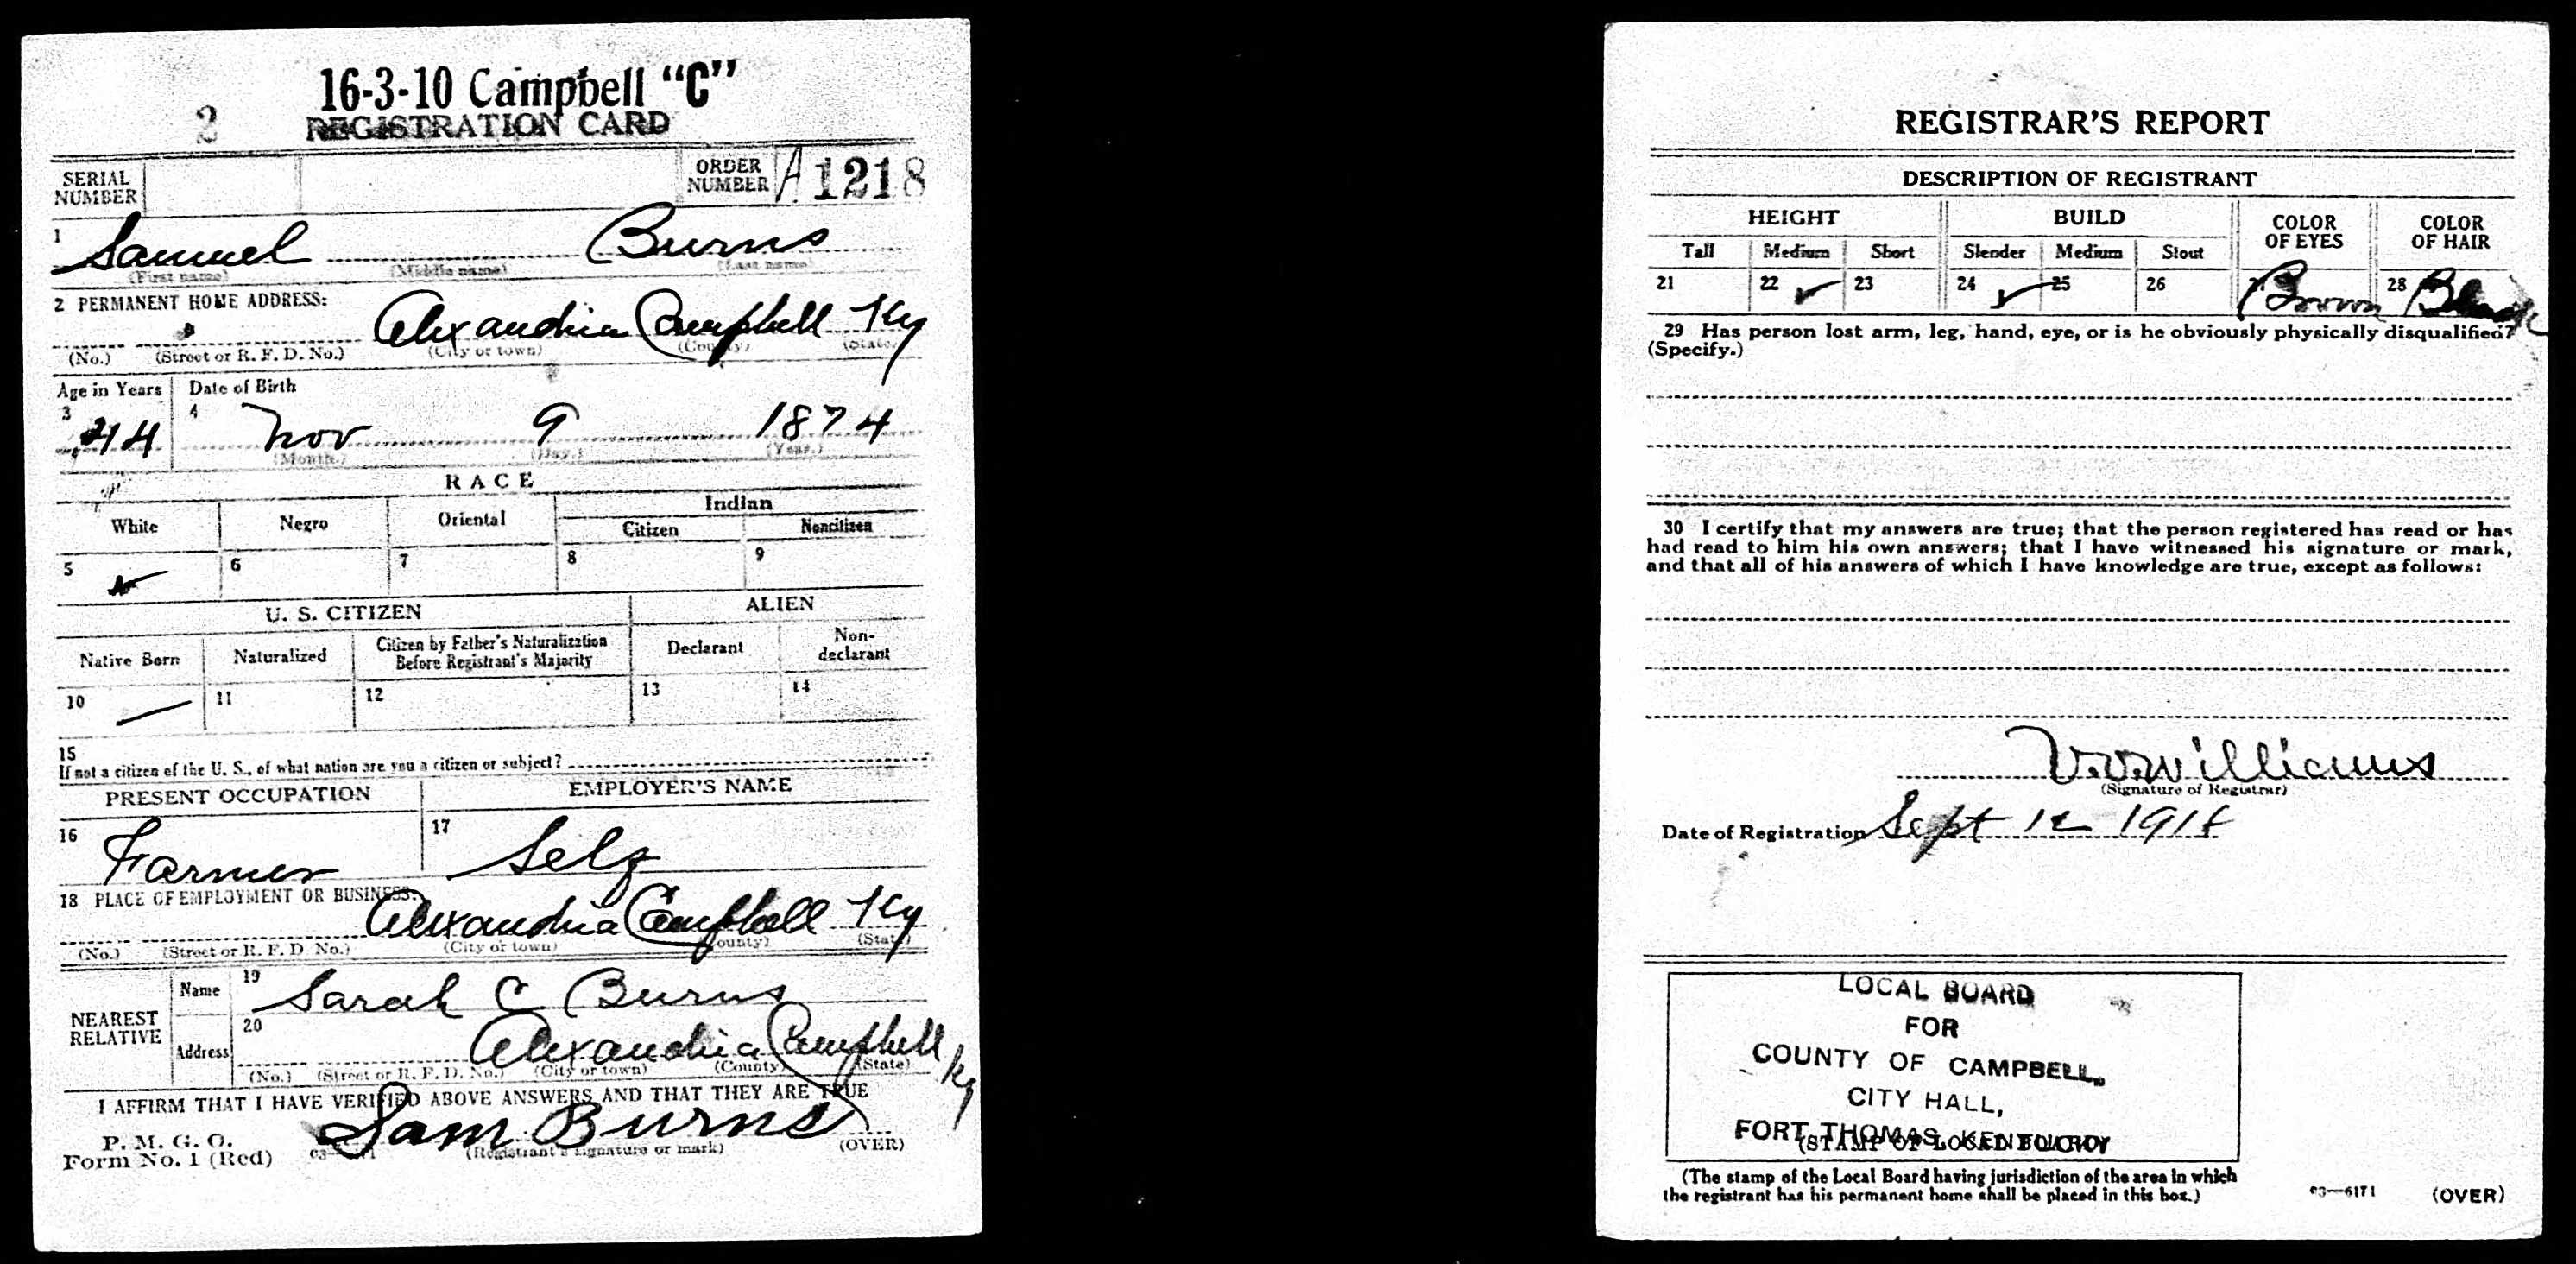 16-3-10 Campbell "C"
2 REGISTRATION CARD
SERIAL NUMBER ORDER NUMBER A 1218
1 Samuel Burns
(First name) (Middle name) (Last name)
2 PERMANENT HOME ADDRESS:
Alexandria Campbell Ky
(No.) (Street or R. F. D. No.) (City or town) (County) (State)
Age in Years Date of Birth
3 44 4 Nov 9 1874
(Month.) (Day.) (Year.)
RACE
White Negro Oriental Indian
Citizen Noncitizen
5 6 7 8 9
U. S. CITIZEN ALIEN
Native Born Naturalized Citizen by Father's Naturalization Before Registrant's Majority Declarant Non-declarant
10 11 12 13 14
15
If not a citizen of the U. S., of what nation are you a citizen or subject?
PRESENT OCCUPATION EMPLOYER'S NAME
16 Farmer 17 Self
18 PLACE OF EMPLOYMENT OR BUSINESS:
Alexandria Campbell Ky
(No.) (Street or R. F. D. No.) (City or town) (County) (State)
NEAREST RELATIVE
Name 19 Sarah C Burns
Address 20 Alexandria Campbell Ky
(No.) (Street or R. F. D. No.) (City or town) (County) (State)
I AFFIRM THAT I HAVE VERIFIED ABOVE ANSWERS AND THAT THEY ARE TRUE
P. M. G. O.
Form No. 1 (Red) Sam Burns
(Registrant's signature or mark) (OVER)
REGISTRAR'S REPORT
DESCRIPTION OF REGISTRANT
HEIGHT BUILD COLOR OF EYES COLOR OF HAIR
Tall Medium Short Slender Medium Stout
21 22 23 24 25 26 27 Brown 28 Black
29 Has person lost arm, leg, hand, eye, or is he obviously physically disqualified?
(Specify.)
30 I certify that my answers are true; that the person registered has read or has
had read to him his own answers; that I have witnessed his signature or mark,
and that all of his answers of which I have knowledge are true, except as follows:
V.V. Williams
(Signature of Registrar)
Date of Registration Sept 12 1918
LOCAL BOARD
FOR
COUNTY OF CAMPBELL,
CITY HALL,
FORT THOMAS, KENTUCKY
(STAMP OF LOCAL BOARD)
(The stamp of the Local Board having jurisdiction of the area in which
the registrant has his permanent home shall be placed in this box.)
03—6171 (OVER)